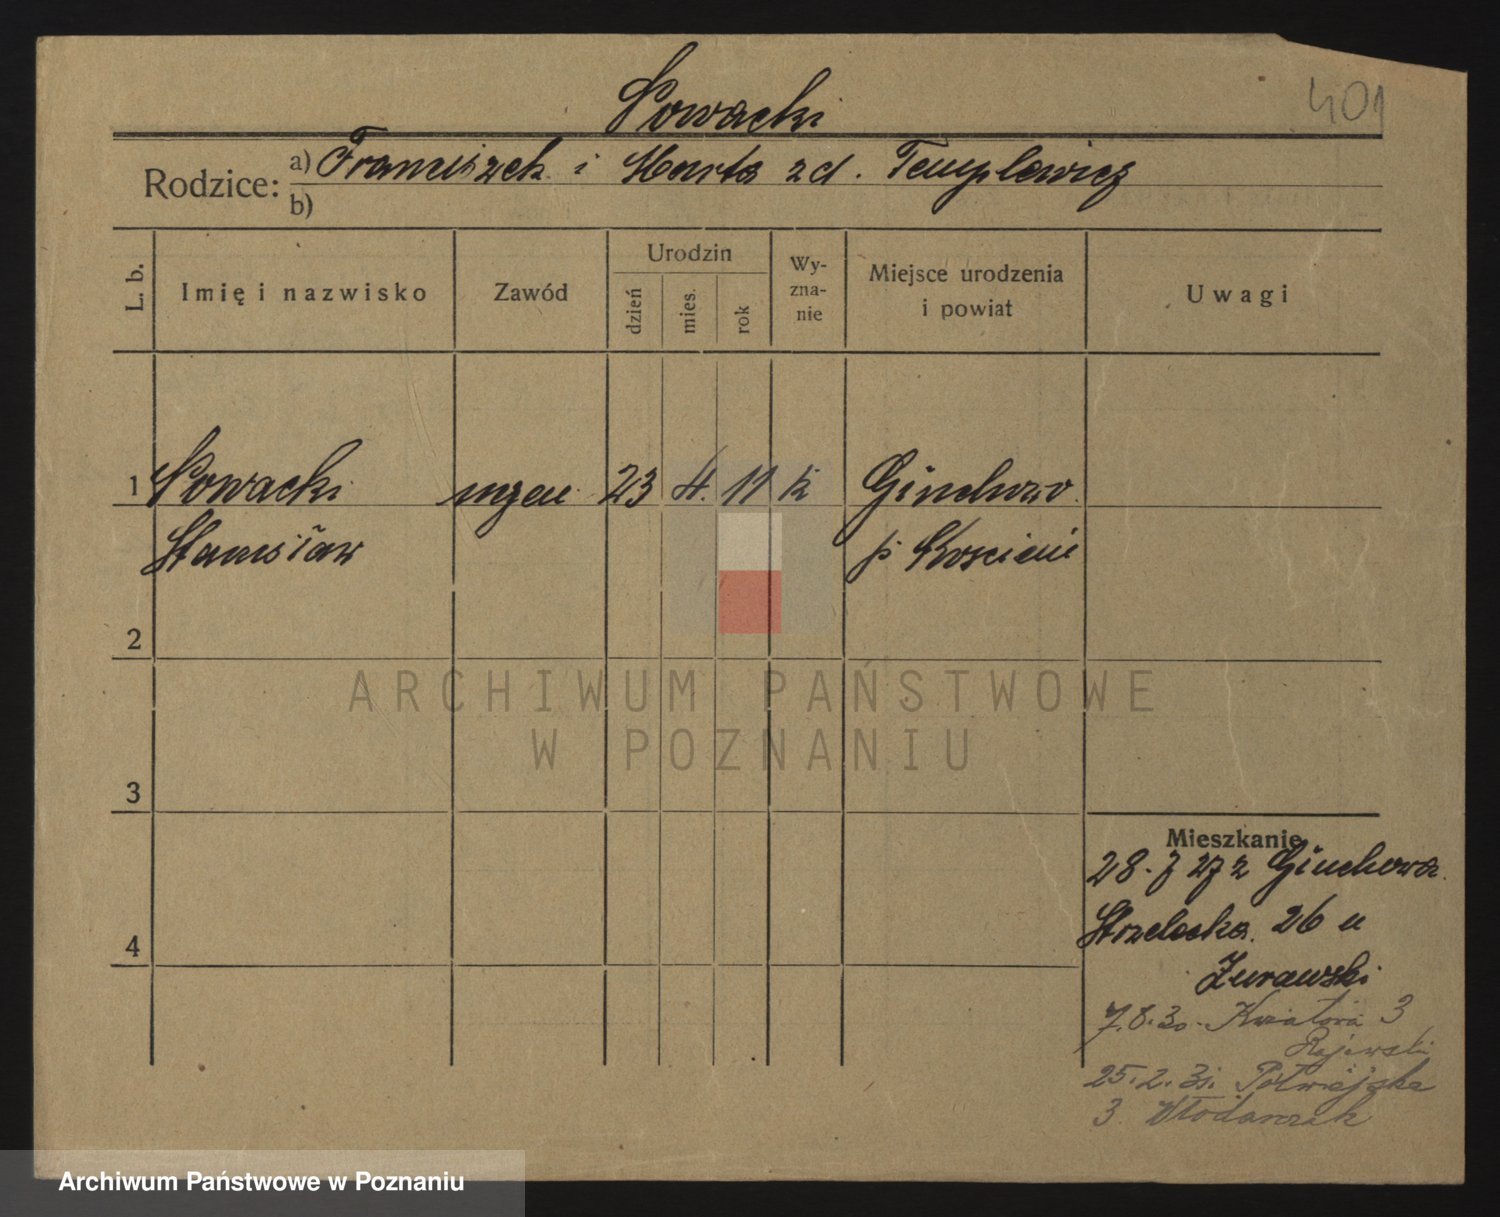 401
Sowacki
Rodzice: a) Franciszek i Marta zd. Templewicz
b)
L. b.
Imię i nazwisko
Zawód
Urodzin
dzień
mies.
rok
Wy-
zna-
nie
Miejsce urodzenia
i powiat
Uwagi
1 Sowacki uczeń 23 4. 11 k Ginchowo
Stanisław p Kościan
2
3
4
Mieszkanie
28.7 27 z Ginchowa
Strzelecka 26 u
Żurawski
7.8.30. Kwiatowa 3
Rajewski
25.2.31. Półwiejska
3 Włodarczak
ARCHIWUM PAŃSTWOWE
W POZNANIU
Archiwum Państwowe w Poznaniu